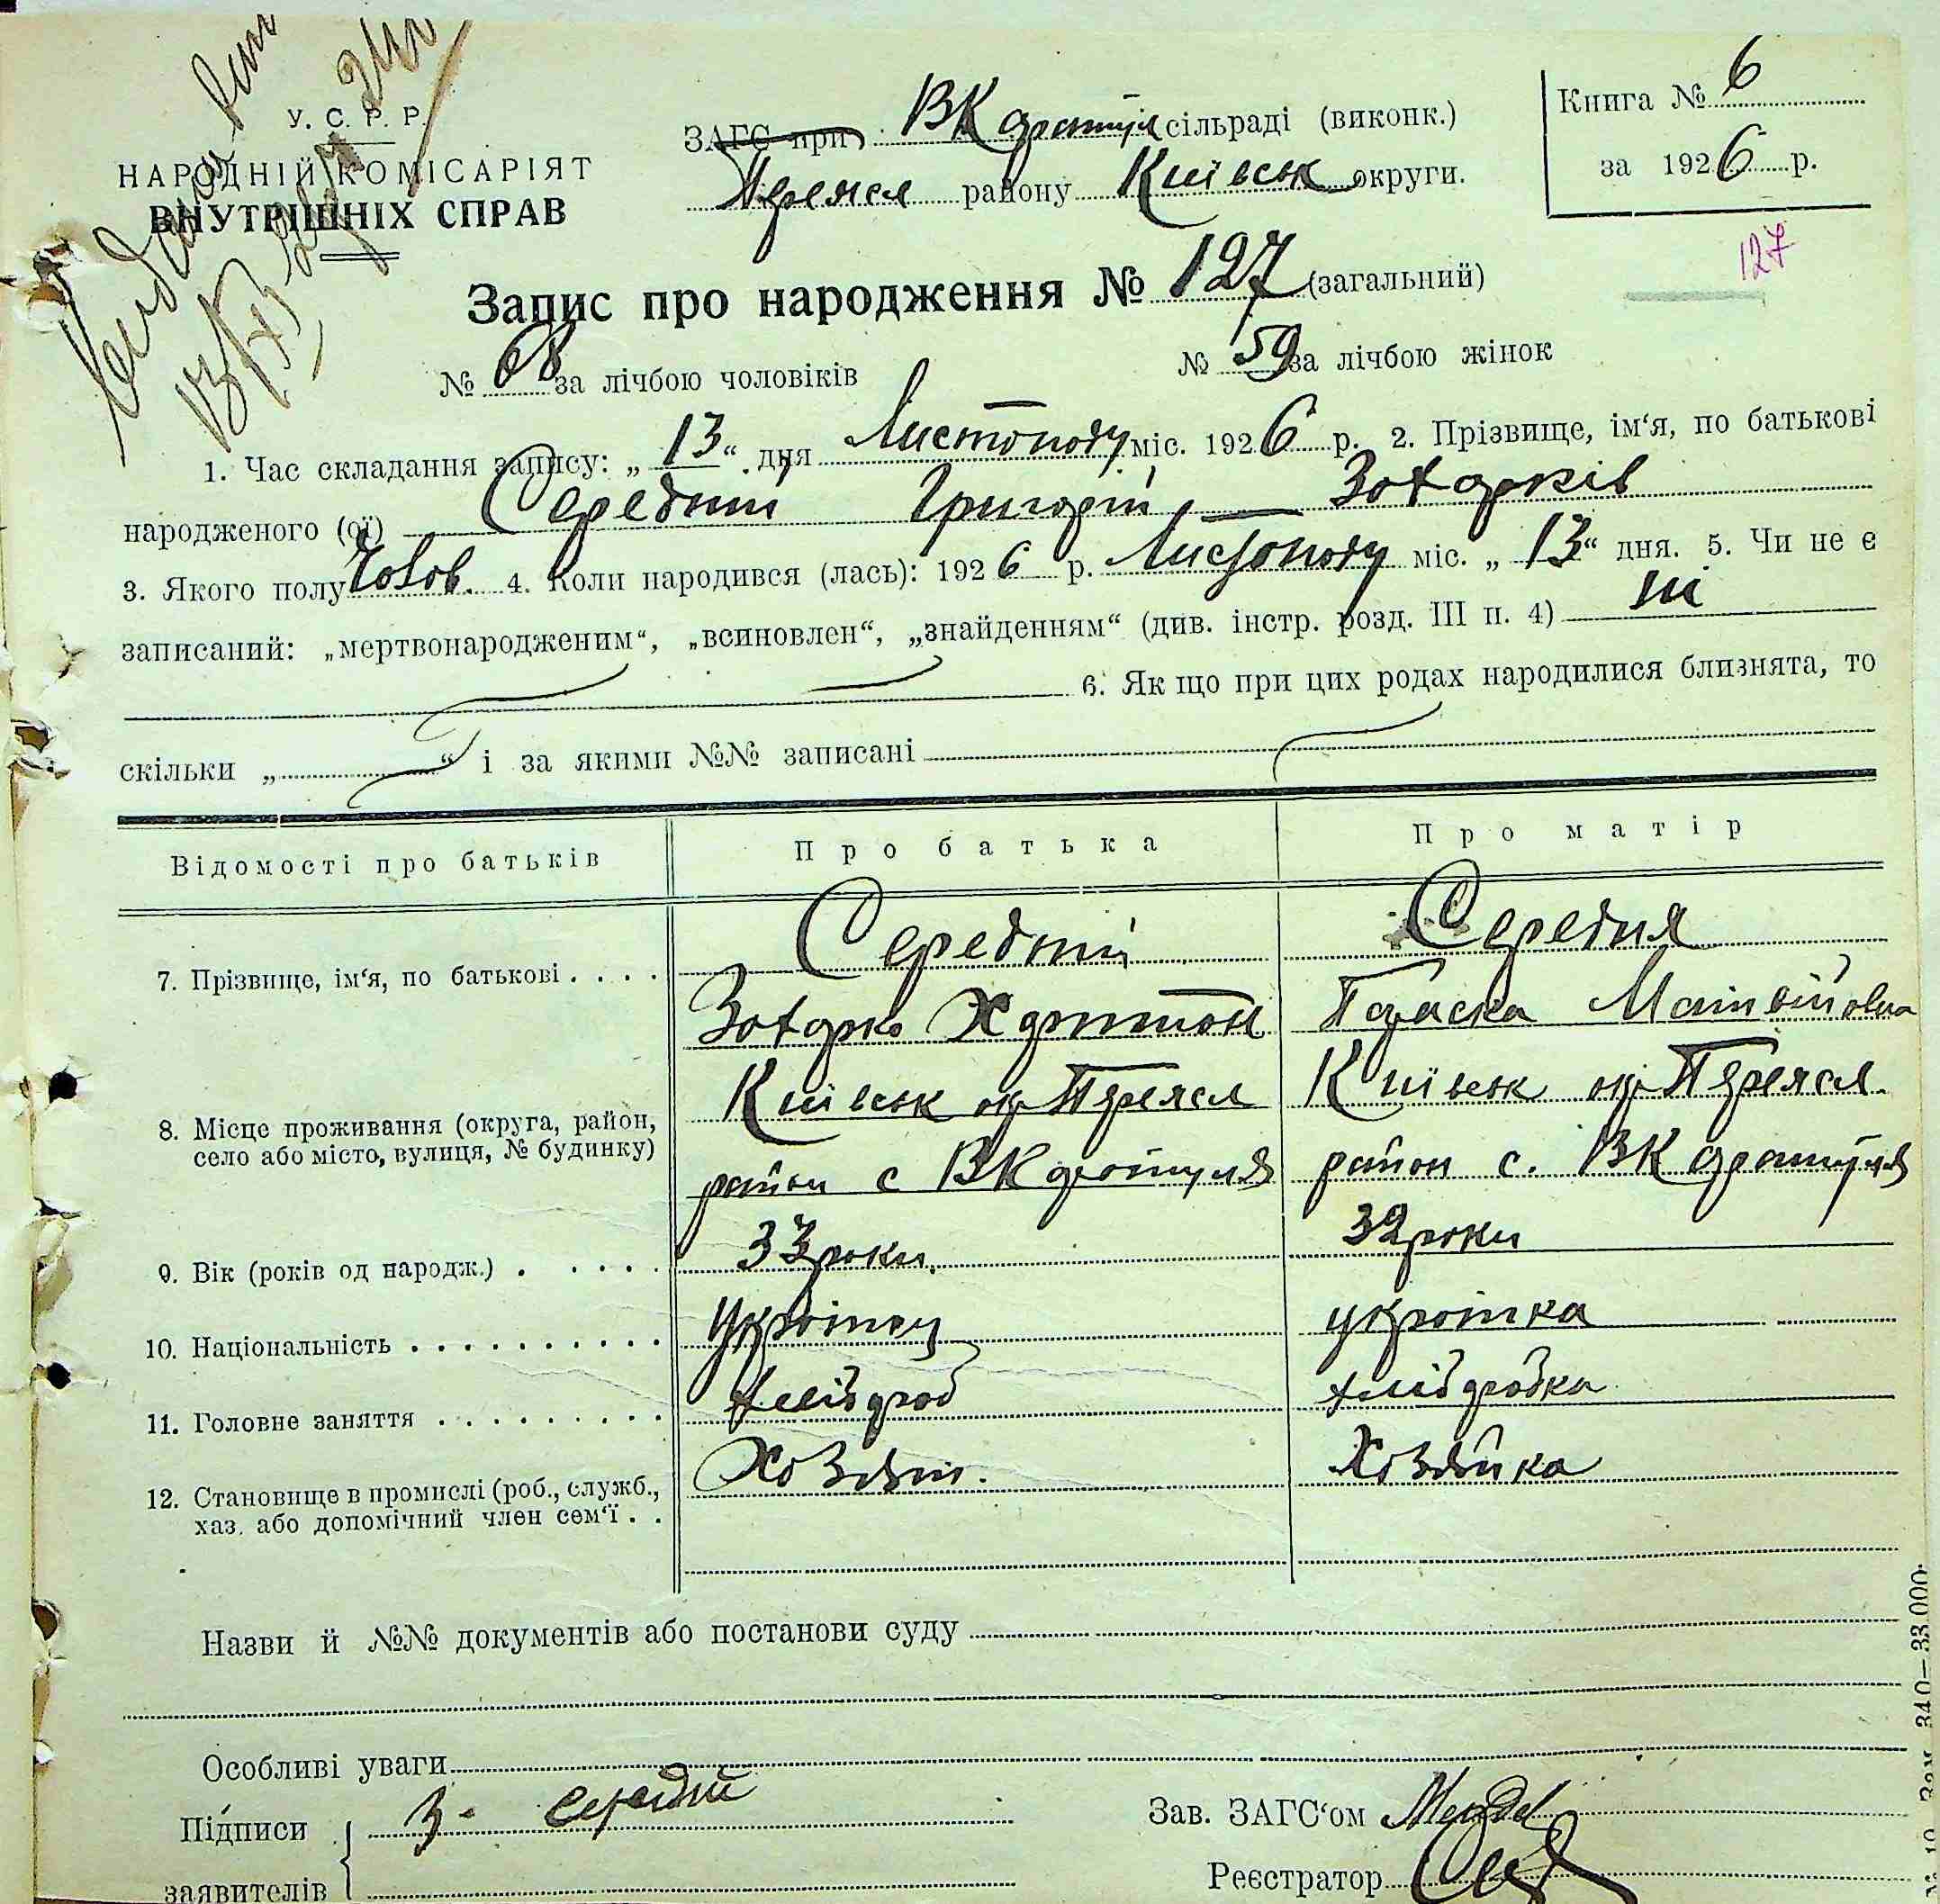 У. С. Р. Р.
НАРОДНІЙ КОМІСАРІЯТ
ВНУТРІШНІХ СПРАВ
ЗАГС при ВКаратул сільраді (виконк.)
Переясл району Київськ округи.
Книга № 6
за 1926 р.
127
Запис про народження № 127 (загальний)
№ 68 за лічбою чоловіків № 59 за лічбою жінок
1. Час складання запису: „13“ дня Листопаду міс. 1926 р. 2. Прізвище, ім‘я, по батькові
народженого (ої) Середній Григорій Захарків
3. Якого полу Чолов. 4. Коли народився (лась): 1926 р. Листопаду міс. „13“ дня. 5. Чи не є
записаний: „мертвонародженим“, „всиновлен“, „знайденням“ (див. інстр. розд. III п. 4) ні
6. Як що при цих родах народилися близнята, то
скільки „ “ і за якими №№ записані
Відомості про батьків Про батька Про матір
7. Прізвище, ім‘я, по батькові . . . . Середній Середня
Захарко Харитон Параска Матвійовна
8. Місце проживання (округа, район, село або місто, вулиця, № будинку) Київськ ок Переясл Київськ ок Переясл.
район с ВКаратуля район с. ВКаратуля
9. Вік (років од народж.) . . . . . 33 роки. 32 роки
10. Національність . . . . . . . . . . Українец українка
11. Головне заняття . . . . . . . . . хлібороб хлібробка
12. Становище в промислі (роб., служб., хаз. або допомічний член сем‘ї . . Хозяїн. Хозяйка
Назви й №№ документів або постанови суду
Особливі уваги
Підписи З. Середній
заявителів
Зав. ЗАГС‘ом
Реєстратор